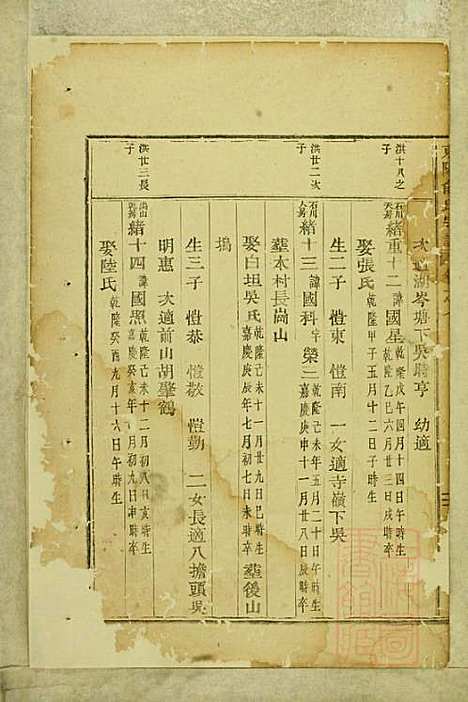 次適湖岑塘下吳 亨 幼適
洪十八之子
緒重十二諱國星 乾隆戊午四月十四日午時生 乾隆乙巳六月廿三日戌時卒
娶張氏 乾隆甲子五月十二日子時生
生二子 愷東 愷南 一女適寺嶺下吳
洪廿二次子
石川
緒十三諱國科 字榮三 乾隆己未年五月二十日午時生 嘉慶庚申十一月廿八日辰時卒
葬本村長崗山
娶白坦吳氏 乾隆己未十一月廿九日巳時生 嘉慶庚辰年七月初七日未時卒 葬後山
塢
生三子 愷恭 愷敖 愷勤 二女長適八擔頭吳
明惠 次適前山胡肇鶴
洪廿三長子
緒十四諱國照 乾隆己未十二月初八日亥時生 嘉慶癸亥年 月初九日申時卒
娶陸氏 乾隆癸酉九月十六日午時生